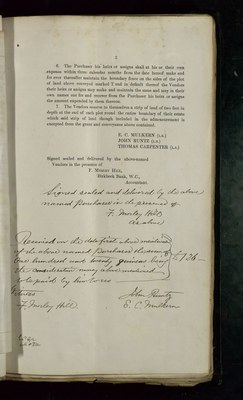 7
6. The Purchaser his heirs or assigns shall at his or their own
expense within three calendar months from the date hereof make and
for ever thereafter maintain the boundary fence on the sides of the plot
of land above conveyed marked T and in default thereof the Vendors
their heirs or assigns may make and maintain the same and may in their
own names sue for and recover from the Purchaser his heirs or assigns
the amount expended by them thereon.
7. The Vendors reserve to themselves a strip of land of two feet in
depth at the end of each plot round the entire boundary of their estate
which said strip of land though included in the admeasurement is
excepted from the grant and conveyance above contained.
E. C. MULKERN (L.S.)
JOHN RUNTZ (L.S.)
THOMAS CARPENTER (L.S.)
Signed sealed and delivered by the above-named
Vendors in the presence of
F. MORLEY HILL,
Birkbeck Bank, W.C.,
Accountant.
Signed sealed and delivered by the above
named Purchaser in the presence of
F. Morley Hill
Received on the date first above mentioned
of the above named Purchaser the sum of
One hundred and twenty guineas being £126
the consideration money above mentioned
to be paid by him to us
Witness
F. Morley Hill
John Runtz
E. C. Mulkern